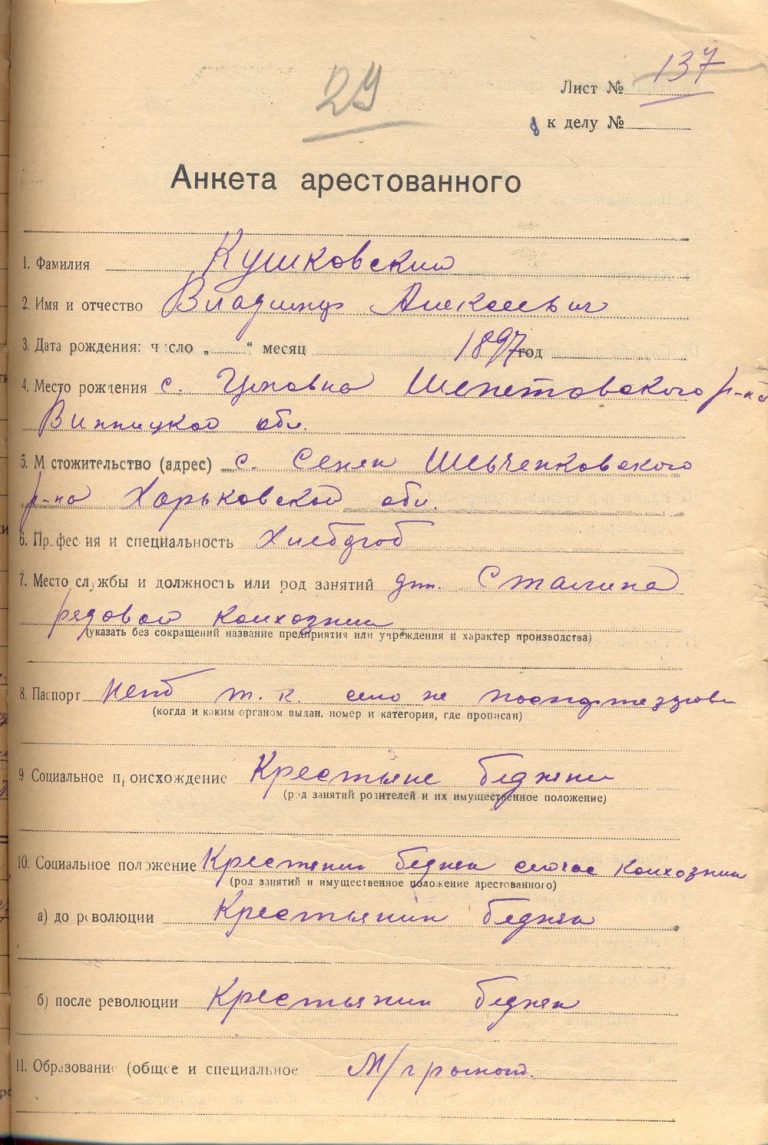 29
Лист № 137
к делу №
Анкета арестованного
1. Фамилия Кушковский
2. Имя и отчество Владимир Алексеевич
3. Дата рождения: число „ “ месяц 1897 год
4. Место рождения с. Шепетовского р-на
Винницкой обл.
5. М стожительство (адрес) с. Шевченковского
р-на Харьковской обл.
6. Професия и специальность Хлебороб
7. Место службы и должность или род занятий Сталина
рядовой колхозник
(указать без сокращений название предприятия или учреждения и характер производства)
8. Паспорт т. к. село не
(когда и каким органом выдан, номер и категория, где прописан)
9 Социальное происхождение Крестьяне бедняки
(род занятий родителей и их имущественное положение)
10. Социальное положение бедняк сейчас колхозник
(род занятий и имущественное положение арестованного)
а) до революции Крестьянин бедняк
б) после революции Крестьянин бедняк
11. Образование (общее и специальное М/грамот.